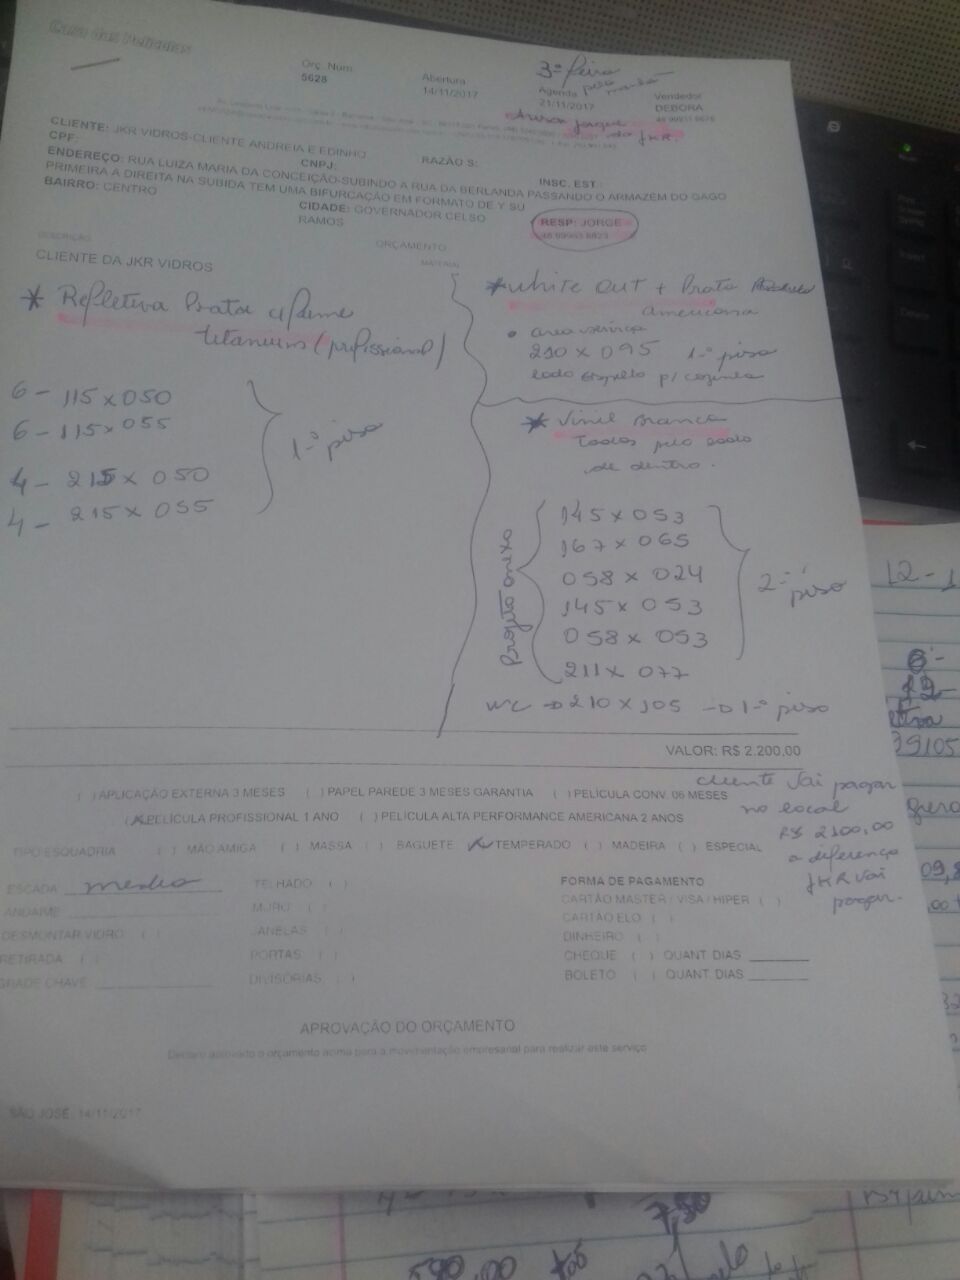 Casa das Películas
3ª feira
pela manhã
Orç. Num.
5628
Abertura
14/11/2017
Agenda
21/11/2017
Vendedor
DEBORA
Avisar Jorge
da JKR.
CLIENTE: JKR VIDROS-CLIENTE ANDREIA E EDINHO
CPF: CNPJ: RAZÃO S: INSC. EST.:
ENDEREÇO: RUA LUIZA MARIA DA CONCEIÇÃO-SUBINDO A RUA DA BERLANDA PASSANDO O ARMAZÉM DO GAGO
PRIMEIRA A DIREITA NA SUBIDA TEM UMA BIFURCAÇÃO EM FORMATO DE Y SU
BAIRRO: CENTRO CIDADE: GOVERNADOR CELSO
RAMOS
RESP: JORGE
48 99963 8823
DESCRIÇÃO
ORÇAMENTO
MATERIAL
CLIENTE DA JKR VIDROS
* Refletiva Prata c/fume
titanium (profissional)
6 - 115 x 050
6 - 115 x 055
4 - 215 x 050
4 - 215 x 055
1º piso
* White out + Prata
americana
• area serviço
210 x 095 1º piso
lado espelho p/ cozinha
* Vinil Branco
Todos pelo lado
de dentro.
Projeto anexo
145 x 053
167 x 065
058 x 024
145 x 053
058 x 053
211 x 077
2º piso
WC → 210 x 105 → 1º piso
VALOR: R$ 2.200,00
cliente vai pagar
no local
R$ 2100,00
a diferença
JKR vai
pagar.
( ) APLICAÇÃO EXTERNA 3 MESES ( ) PAPEL PAREDE 3 MESES GARANTIA ( ) PELÍCULA CONV. 06 MESES
(X) PELÍCULA PROFISSIONAL 1 ANO ( ) PELÍCULA ALTA PERFORMANCE AMERICANA 2 ANOS
TIPO ESQUADRIA ( ) MÃO AMIGA ( ) MASSA ( ) BAGUETE (X) TEMPERADO ( ) MADEIRA ( ) ESPECIAL
ESCADA media
ANDAIME
DESMONTAR VIDRO ( )
RETIRADA ( )
GRADE CHAVE
TELHADO ( )
MURO ( )
JANELAS ( )
PORTAS ( )
DIVISÓRIAS ( )
FORMA DE PAGAMENTO
CARTÃO MASTER / VISA / HIPER ( )
CARTÃO ELO ( )
DINHEIRO ( )
CHEQUE ( ) QUANT DIAS
BOLETO ( ) QUANT DIAS
APROVAÇÃO DO ORÇAMENTO
Declaro aprovado o orçamento acima para a movimentação empresarial para realizar este serviço
SÃO JOSÉ, 14/11/2017
12-1
39105
7,50
590,00